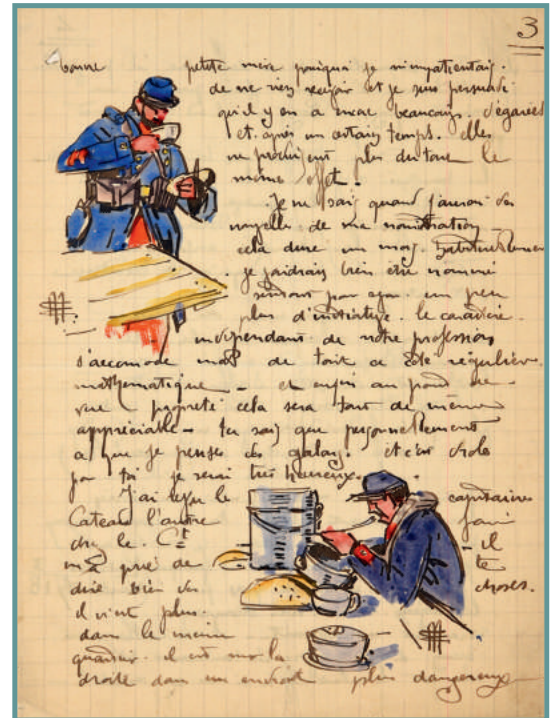 3
bonne petite mère pourquoi je m'impatientais.
de ne rien recevoir et je suis persuadé
qu'il y en a encore beaucoup. d'égarées
et. après un certain temps. elles
ne produisent plus du tout le
même effet.
Je ne sais quand j'aurai des
nouvelles de ma nomination
cela dure un mois habituellement
je voudrais bien être nommé
surtout pour avoir un peu
plus d'initiative. le caractère.
indépendant de notre profession
s'accomode mal de tout ce côté régulier.
mathématique - et enfin au point de
vue propreté cela sera tout de même
appréciable - tu sais que personnellement
ce que je pense des galons. et c'est drôle
pour toi je serai très heureux.
J'ai reçu le capitaine
Cateau l'autre
chez le. Ct - il
m'a prié de te
dire bien des choses.
il n'est plus.
dans le même
quartier. il est sur la
droite dans un endroit plus dangereux